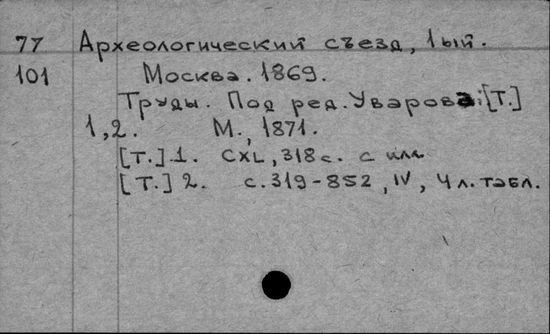 77 Археологический съезд, 1ый.
101 Москва. 1869.
Труды. Под ред. Уварова: [Т.]
1, 2. М., 1871.
[Т.] 1. CXL, 318 с. с илл
[Т.] 2. с. 319-852, IV, 4 л. табл.